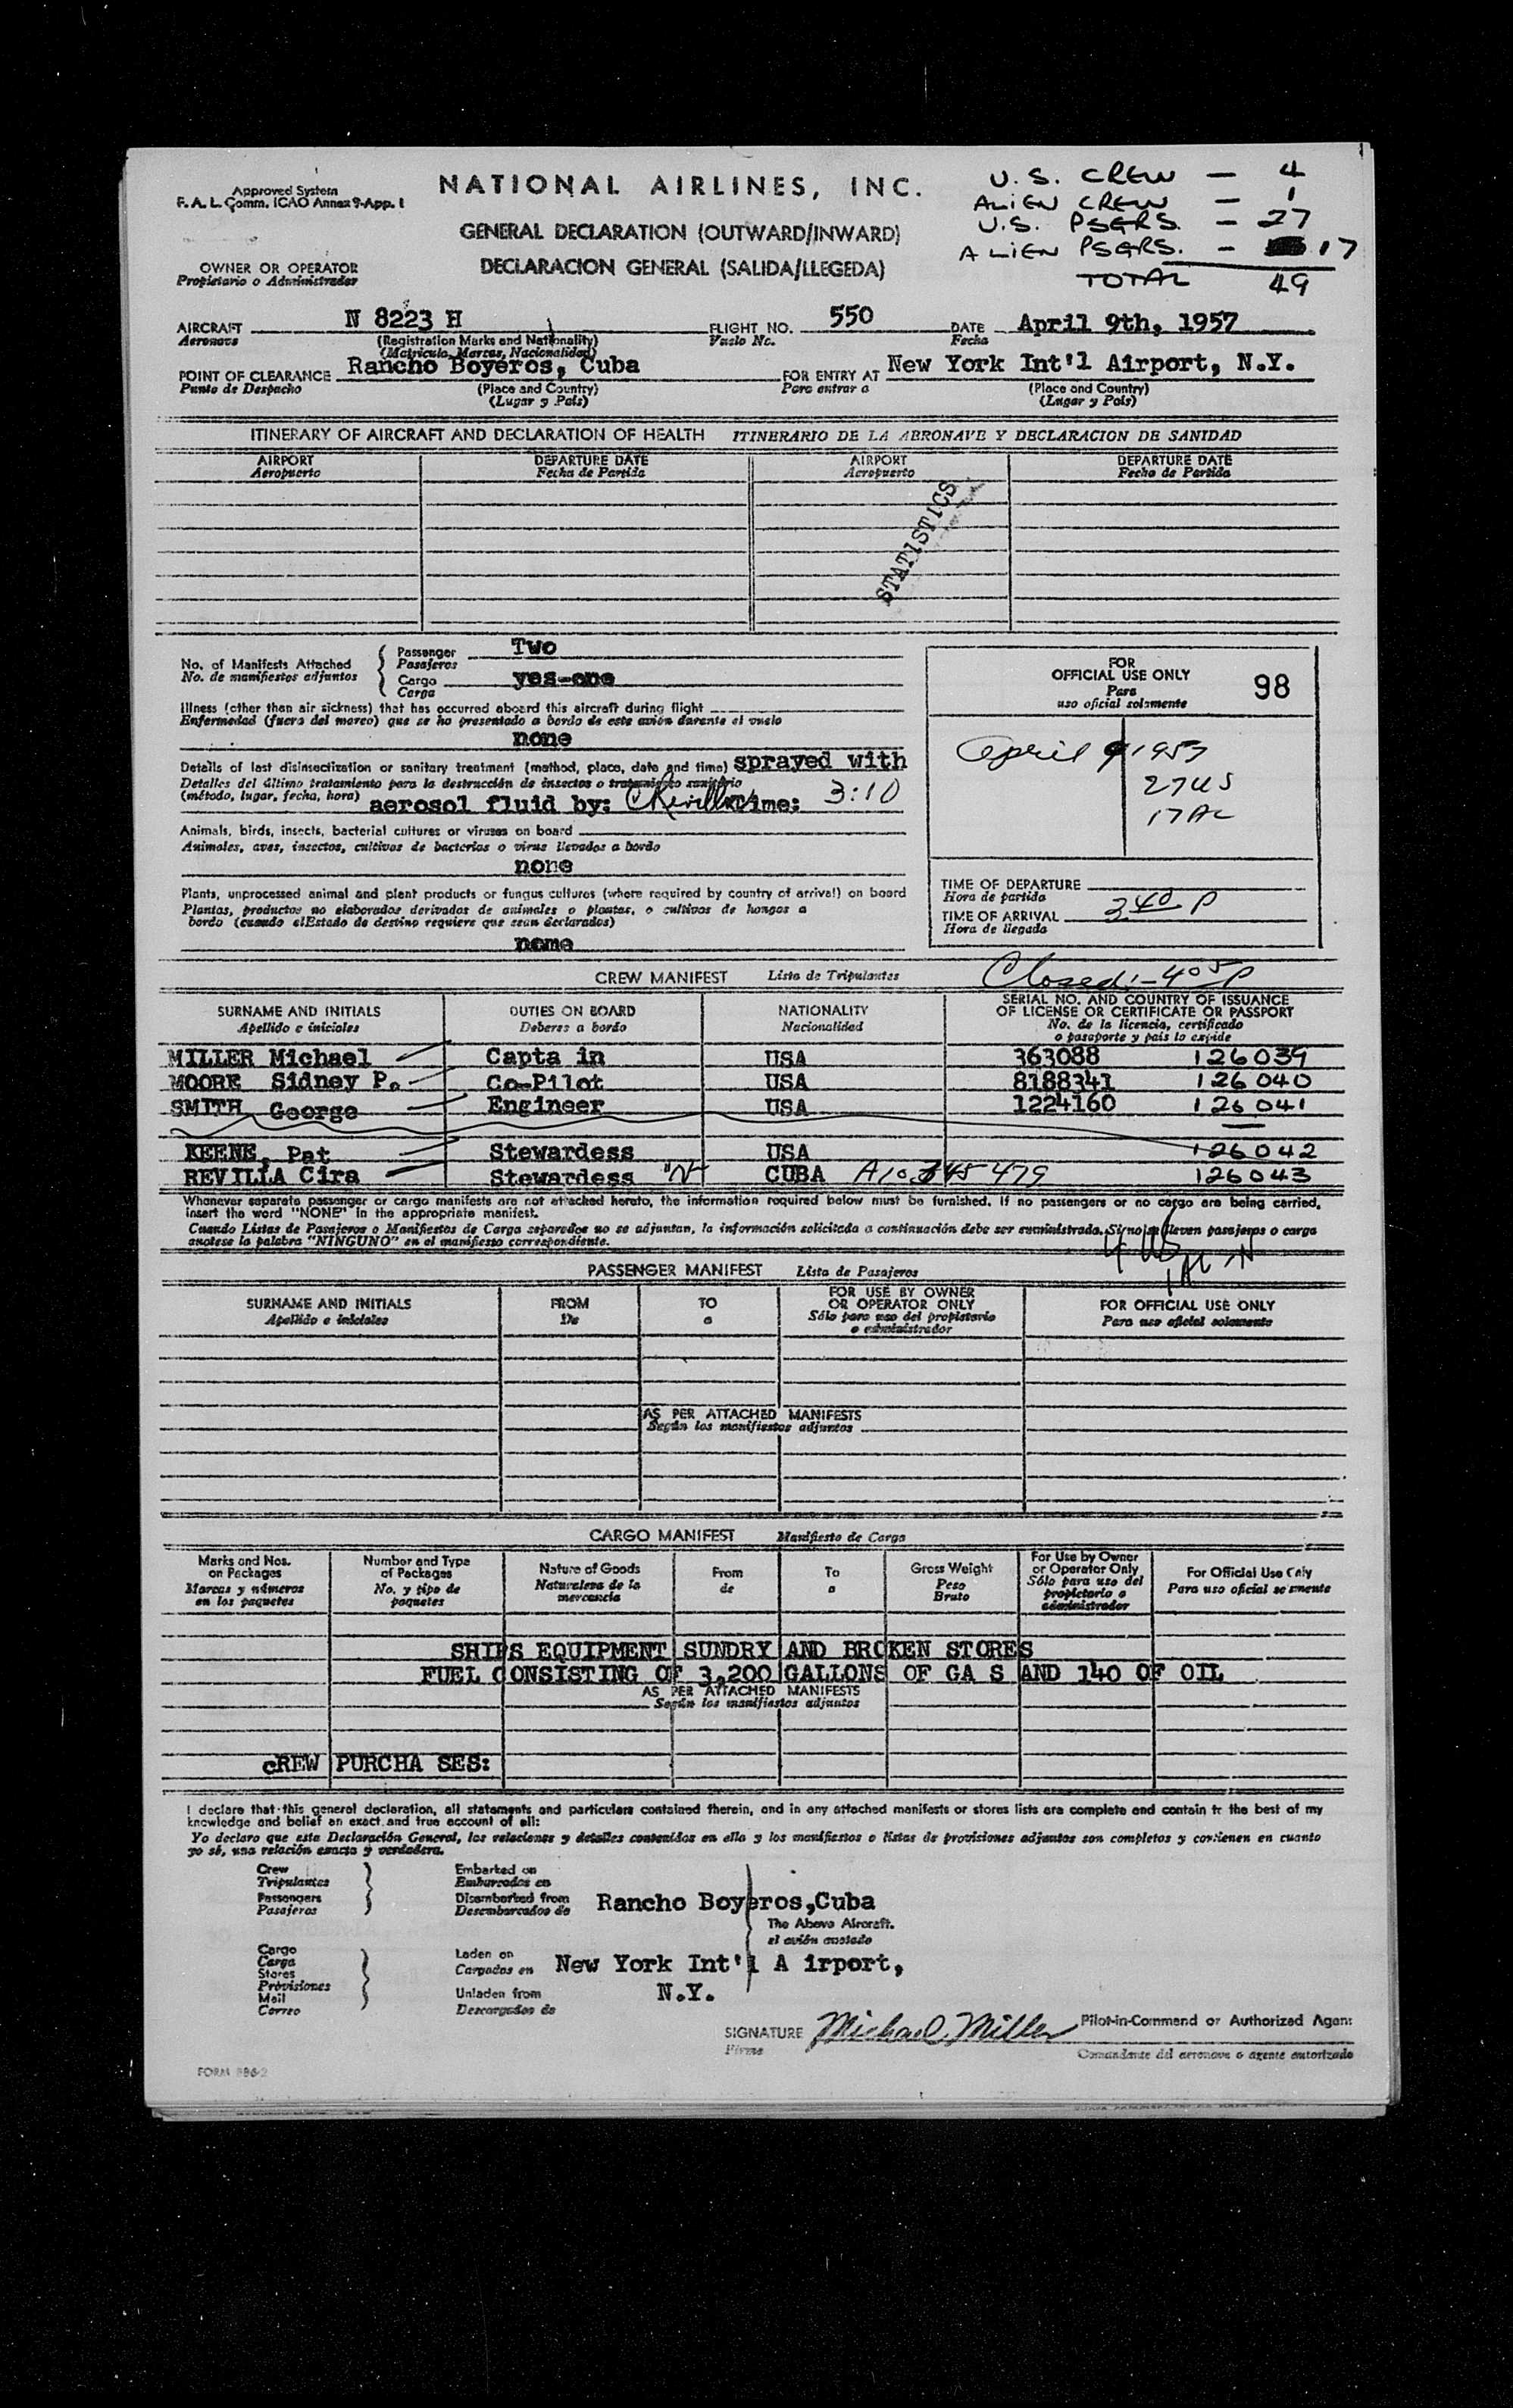 Approved System
F. A. L. Comm. ICAO Annex 9-App. 1
NATIONAL AIRLINES, INC.
GENERAL DECLARATION (OUTWARD/INWARD)
DECLARACION GENERAL (SALIDA/LLEGEDA)
U.S. CREW — 4
ALIEN CREW — 1
U.S. PSGRS. — 27
ALIEN PSGRS. — 17
TOTAL 49
OWNER OR OPERATOR
Propietario o Administrador
AIRCRAFT N 8223 H FLIGHT NO. 550 DATE April 9th, 1957
Aeronave (Registration Marks and Nationality) Vuelo No. Fecha
(Matricula, Marcas, Nacionalidad)
POINT OF CLEARANCE Rancho Boyeros, Cuba FOR ENTRY AT New York Int'l Airport, N.Y.
Punto de Despacho (Place and Country) Para entrar a (Place and Country)
(Lugar y Pais) (Lugar y Pais)
ITINERARY OF AIRCRAFT AND DECLARATION OF HEALTH ITINERARIO DE LA AERONAVE Y DECLARACION DE SANIDAD
AIRPORT DEPARTURE DATE AIRPORT DEPARTURE DATE
Aeropuerto Fecha de Partida Aeropuerto Fecha de Partida
STATISTICS
No. of Manifests Attached Passenger Two
No. de manifiestos adjuntos Pasajeros
Cargo yes-one
Carga
Illness (other than air sickness) that has occurred aboard this aircraft during flight
Enfermedad (fuera del mareo) que se ha presentado a bordo de este avión durante el vuelo
none
Details of last disinsectization or sanitary treatment (method, place, date and time) sprayed with
Detalles del último tratamiento para la destrucción de insectos o tratamiento sanitario
(método, lugar, fecha, hora) aerosol fluid by: CRevilla time: 3:10
Animals, birds, insects, bacterial cultures or viruses on board
Animales, aves, insectos, cultivos de bacterias o virus llevados a bordo
none
Plants, unprocessed animal and plant products or fungus cultures (where required by country of arrival) on board
Plantas, productos no elaborados derivados de animales o plantas, o cultivos de hongos a
bordo (cuando elEstado de destino requiere que sean declarados)
none
FOR
OFFICIAL USE ONLY 98
Para
uso oficial solamente
April 9 1957
27US
17AL
TIME OF DEPARTURE
Hora de partida
TIME OF ARRIVAL 3 40 P
Hora de llegada
CREW MANIFEST Lista de Tripulantes Closed:- 4 05 P
SURNAME AND INITIALS DUTIES ON BOARD NATIONALITY SERIAL NO. AND COUNTRY OF ISSUANCE
OF LICENSE OR CERTIFICATE OR PASSPORT
Apellido e iniciales Deberes a bordo Nacionalidad No. de la licencia, certificado
o pasaporte y pais lo expide
MILLER Michael Capta in USA 363088 126039
MOORE Sidney P. Co-Pilot USA 8188341 126040
SMITH, George Engineer USA 1224160 126041
KEENE, Pat Stewardess USA 126042
REVILLA Cira Stewardess "N" CUBA 126043
Whenever separate passenger or cargo manifests are not attached hereto, the information required below must be furnished. If no passengers or no cargo are being carried,
insert the word "NONE" in the appropriate manifest.
Cuando Listas de Pasajeros o Manifiestos de Carga separados no se adjuntan, la información solicitada a continuación debe ser suministrada. Si no se lleven pasajeros o carga
anotese la palabra "NINGUNO" en el manifiesto correspondiente.
4 US
PASSENGER MANIFEST Lista de Pasajeros
SURNAME AND INITIALS FROM TO FOR USE BY OWNER
OR OPERATOR ONLY FOR OFFICIAL USE ONLY
Apellido e iniciales De a Sólo para uso del propietario
o administrador Para uso oficial solamente
AS PER ATTACHED MANIFESTS
Según los manifiestos adjuntos
CARGO MANIFEST Manifiesto de Carga
Marks and Nos.
on Packages
Marcas y números
en los paquetes
Number and Type
of Packages
No. y tipo de
paquetes
Nature of Goods
Naturaleza de la
mercancia
From
de
To
a
Gross Weight
Peso
Bruto
For Use by Owner
or Operator Only
Sólo para uso del
propietario o
administrador
For Official Use Only
Para uso oficial so mente
SHIPS EQUIPMENT SUNDRY AND BROKEN STORES
FUEL CONSISTING OF 3,200 GALLONS OF GA S AND 140 OF OIL
AS PER ATTACHED MANIFESTS
Según los manifiestos adjuntos
cREW PURCHA SES:
I declare that this general declaration, all statements and particulars contained therein, and in any attached manifests or stores lists are complete and contain to the best of my
knowledge and belief an exact and true account of all:
Yo declaro que esta Declaración General, las relaciones y detalles contenidos en ella y los manifiestos o listas de provisiones adjuntos son completos y contienen en cuanto
yo sé, una relación exacta y verdadera.
Crew
Tripulantes
Passengers
Pasajeros
Embarked on
Embarcados en
Disembarked from Rancho Boyeros,Cuba
Desembarcados de
The Above Aircraft.
el avión anotado
Cargo
Carga
Stores
Provisiones
Mail
Correo
Laden on
Cargados en New York Int'l A irport,
Unladen from N.Y.
Descargados de
SIGNATURE Michael Miller Pilot-in-Command or Authorized Agent
Firma Comandante del aeronave o agente autorizado
FORM 886-2